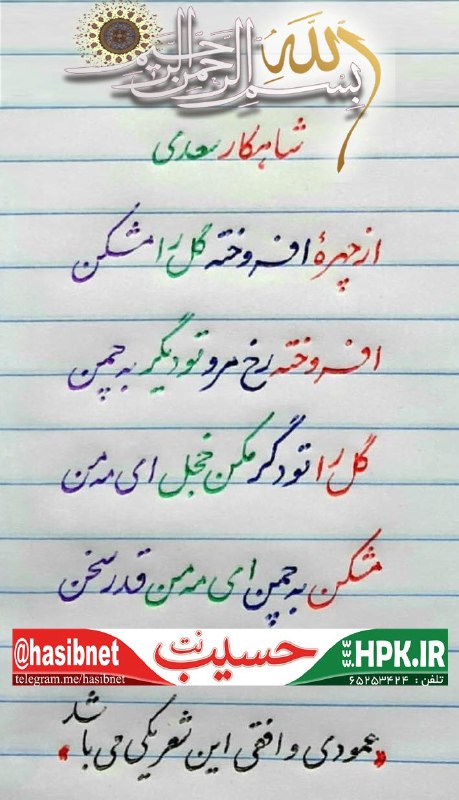 بسم الله الرحمن الرحیم
شاهکار سعدی
از چهرهٔ افروخته گل را مشکن
افروخته رخ مرو تو دیگر به چمن
گل را تو دگر مکن خجل ای مه من
مشکن به چمن ای مه من قدر سخن
@hasibnet حسیب نت WWW.HPK.IR
telegram.me/hasibnet تلفن : ۶۵۲۵۳۴۲۴
«عمودی و افقی این شعر یکی می باشد»